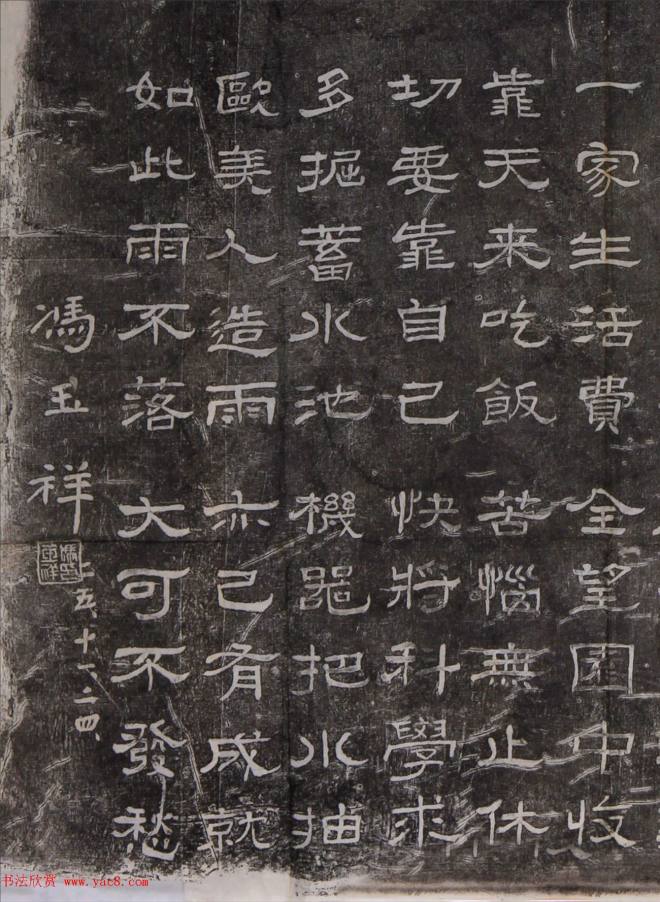 一家生活費 全望園中收
靠天来吃飯 苦惱無止休
切要靠自己 快將科學求
多掘蓄水池 機器把水抽
歐美人造雨 亦已有成就
如此雨不落 大可不發愁
馮玉祥
廿五、十一、二四、
书法欣赏 www.yac8.com